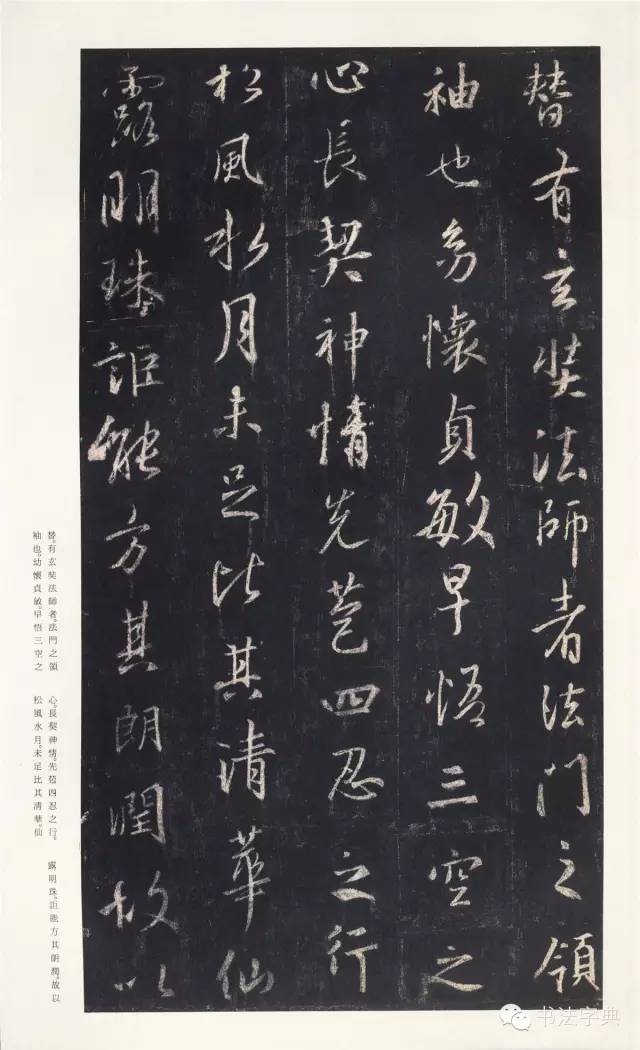 替有玄奘法師者法門之領
袖也幼懷貞敏早悟三空之
心長契神情先苞四忍之行
松風水月未足比其清華仙
露明珠詎能方其朗潤故以
替。有玄奘法師者。法門之領
袖也。幼懷貞敏。早悟三空之
心。長契神情。先苞四忍之行。
松風水月。未足比其清華。仙
露明珠。詎能方其朗潤。故以
书法字典